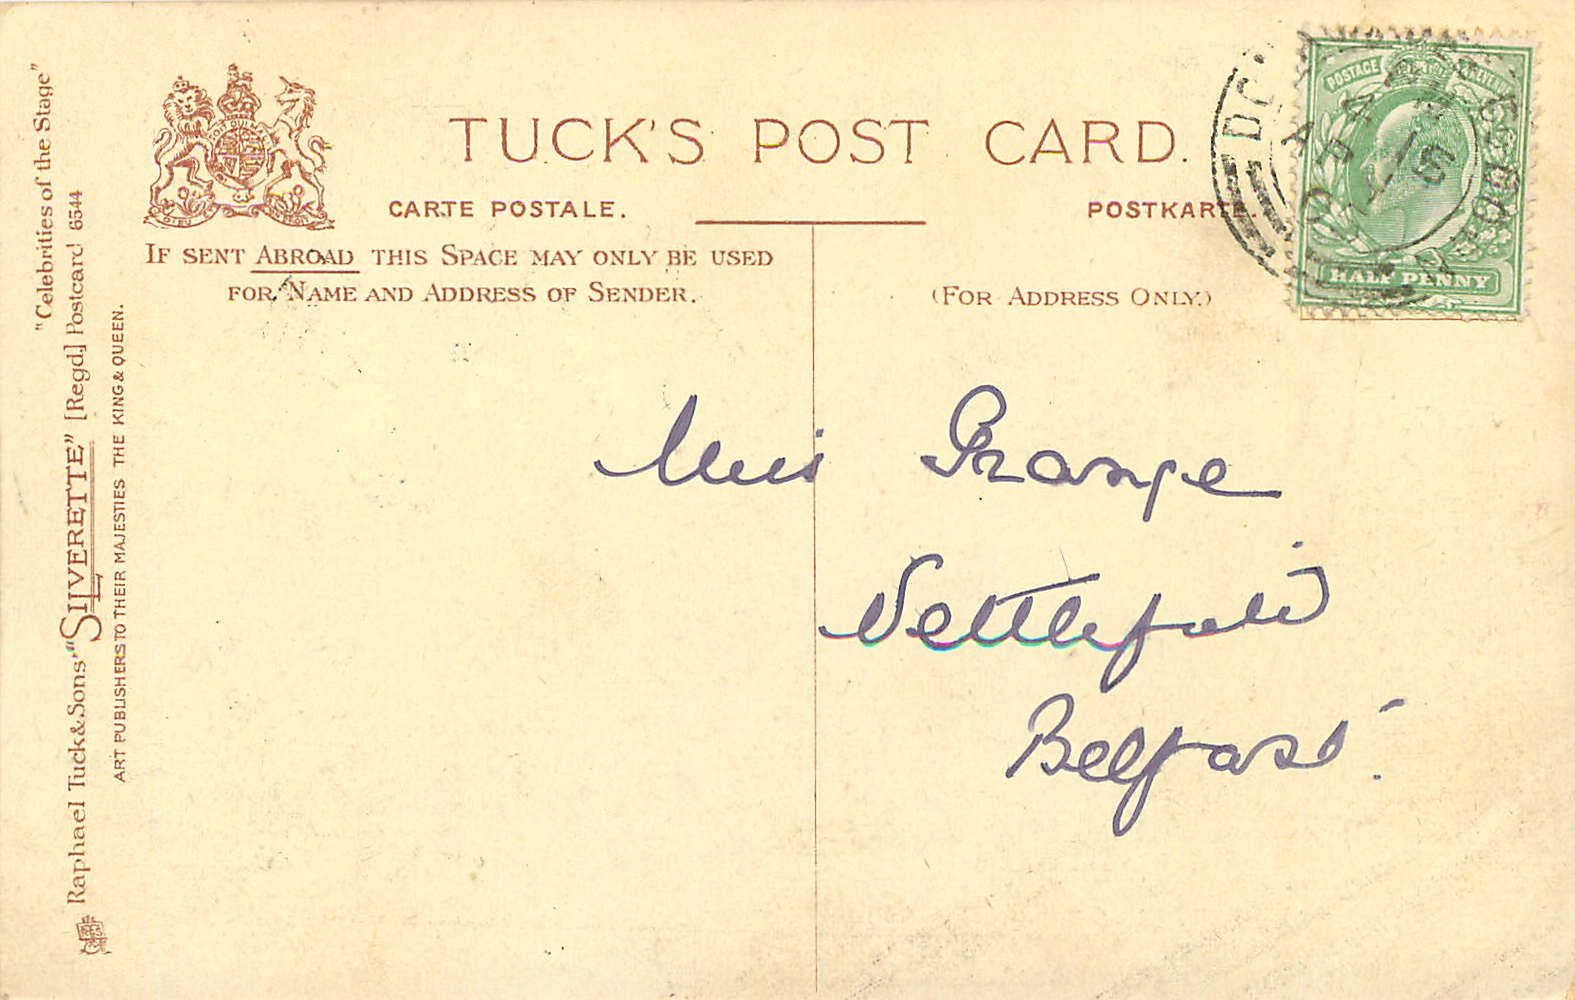 "Celebrities of the Stage"
Raphael Tuck & Sons' "SILVERETTE" [Regd.] Postcard 6544
ART PUBLISHERS TO THEIR MAJESTIES THE KING & QUEEN.
TUCK'S POST CARD.
CARTE POSTALE. POSTKARTE.
IF SENT ABROAD THIS SPACE MAY ONLY BE USED
FOR NAME AND ADDRESS OF SENDER.
(FOR ADDRESS ONLY.)
POSTAGE
HALF PENNY
Miss Grange
Nettlefield
Belfast.